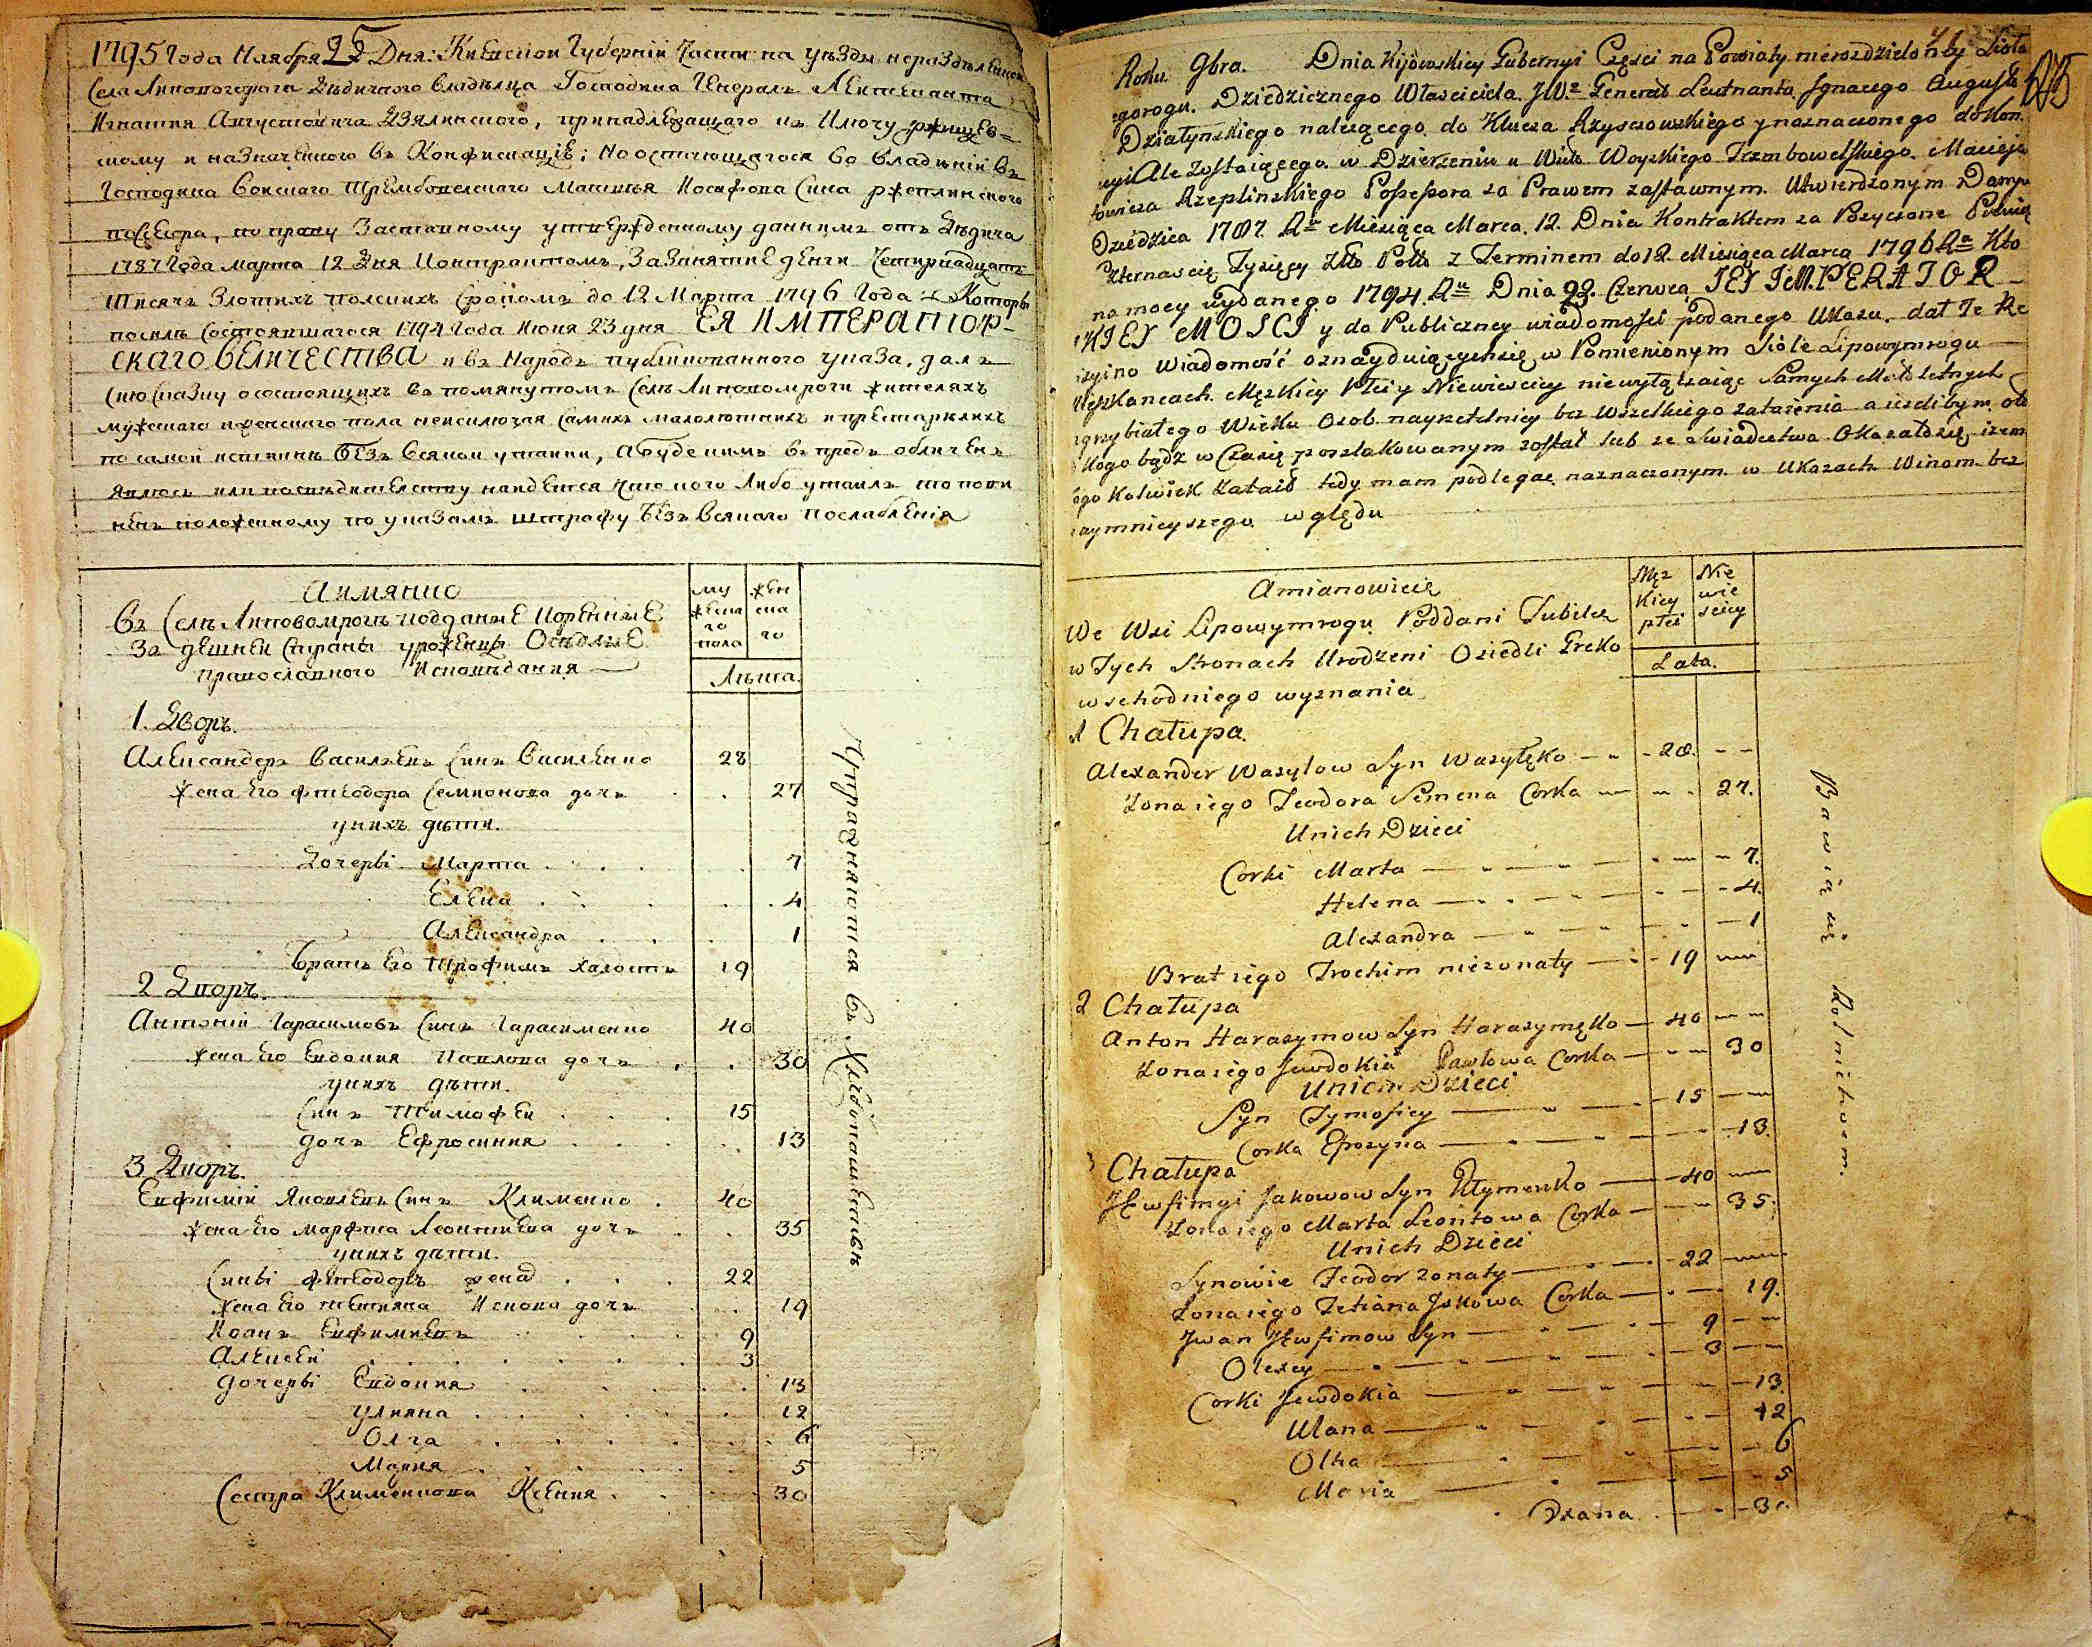 1795 Года Ноября 25 Дня: Киевской Губернїи Части на уѣзды нераздѣленной
Села Липовогорога Дѣдичнаго Владѣлца Господина Генералъ Лентенанта
Игнатия Августовича Дзялинского, принадлежащаго къ Ключу ржищев=
скому и назначенного въ Конфискацїю; Но остающагося во владѣнїи въ
Господина Воискаго Трембовелскаго Матвѣя Иосифова Сина ржеплинского
посессора, по праву Заставному утвержденному даннимъ отъ Дѣдича
1787 Года марта 12 Дня Контрактомъ, За Взятие денги Четирнадцать
тисячъ Злотихъ полскихъ срокомъ до 12 Марта 1796 Года
посилъ состоявшагося 1794 Года Июня 23 дня ЕЯ ИМПЕРАТОР-
СКАГО ВЕЛИЧЕСТВА и въ Народъ публикованного указа, далъ
сию сказку о состоящихъ въ помянутомъ селѣ Липовомроги жителяхъ
мужескаго и женскаго пола неисключая самихъ малолютнихъ и престарелихъ
по самой истиннѣ безъ всякой утайки, а буде кимъ в предъ обличенъ
явлюсь или по свидителству найдется что кого либо утаилъ то пови
ненъ положенному по указамъ штрафу безъ всякаго послабленїя
А имянно
Въ Селѣ Липовомрогѣ поддание Коренние
Здешней страны урожение Оседлие
православного Исповѣдания
му жеска го пола
жен ска го
Лѣта.
1. Дворъ.
Александеръ Василевъ Синъ Василенко 28
жена его Фтеодора Семионова дочъ 27
у нихъ дѣти.
Дочери Марта 7
Елена 4
Александра 1
братъ его Трофимъ холостъ 19
2 Дворъ.
Антонїй Гарасимовъ Синъ Гарасименко 40
жена его Евдокия Павлова дочъ 30
у нихъ дѣти.
Синъ Тимофей 15
дочъ Ефросиния 13
3 Дворъ.
Евфимїй Яковлевъ Синъ Клименко 40
жена его Марфта Леонтиева дочъ 35
у нихъ дѣти.
Сини Фтеодоръ женат 22
жена его Тетяна Якова дочъ 19
Иоанъ Евфимиевъ 9
Алексей 3
дочери Евдокия 13
улияна 12
Олга 6
Мария 5
Сестра Клименкова Ксения 30
Упражняются въ Хлебопашествѣ
Roku 9bra. Dnia Kijowskiey Gubernyi Częsci na Powiaty nierozdzielo
gorogu. Dziedzicznego Właściciela JWo Generał Leutnanta Ignacego August
Działynskiego należącego do Klucza Rzysczowskiego y naznaczonego do Kon
Ale Zostaiącego w Dzierzeniu u Woyskiego Trembowelskiego Macieja
Rzeplinskiego Possessora za Prawem zastawnym. Utwierdzonym Danym
Dziedzica 1787 Ru Miesiąca Marca 12. Dnia Kontraktem za Pozyczone Pieniąd
Czternascię Tysięcy Złto Pols z Terminem do 12 Miesiąca Marca 1796 Ru Kto
na mocy wydanego 1794 Ru Dnia 23 Czerwca IEY IMPERATOR
SKIEY MOSCI y do Publiczney wiadomosci podanego Ukazu. dał Te Re
wiadomość oznayduiącychsię w Pomienionym Siole Lipowymrogu
Mięszkancach Męzkiey Płci y Niewiesciey niewyłączaiąc Samych Małoletnych
zgrzybiałego Wieku Osob nayrzetelniey bez Wszelkiego zataienia a iezelibym
Kogo bądz w Czasię poszlakowanym został lub ze Swiadectwa Okazałosię, izem
Kolwiek Zataił tedy mam podlegac naznaczonym w Ukazach Winom bez
naymnieyszego względu
71
Amianowicię
We Wsi Lipowymrogu Poddani Tubilcę
w Tych Stronach Urodzeni Osiedli Greko
wschodniego wyznania
Męz kiey płci
Nie wie sciey
Lata.
1 Chałupa.
Alexander Wasylow Syn Wasyłęko 28
Zona iego Teodora Semena Corka 27.
Unich Dzieci
Corki Marta 7.
Helena 4.
Alexandra 1
Brat iego Trochim niezonaty 19
2 Chałupa
Anton Harasymow Syn Harasymęko 40
Zona iego Jewdokia Pawłowa Corka 30
Unich Dzieci
Syn Tymofiey 15
Corka Eprozyna 13.
3 Chałupa
Jewfimyi Jakowow Syn Kłymenko 40
Zona iego Marta Leontowa Corka 35.
Unich Dzieci
Synowie Teodor zonaty 22
Zona iego Tetiana Jakowa Corka 19.
Jwan Jewfimow Syn 9
Olexey 3
Corki Jewdokia 13.
Ulana 12
Olha 6
Maria 5
30.
Bawią się Rolnictwem.